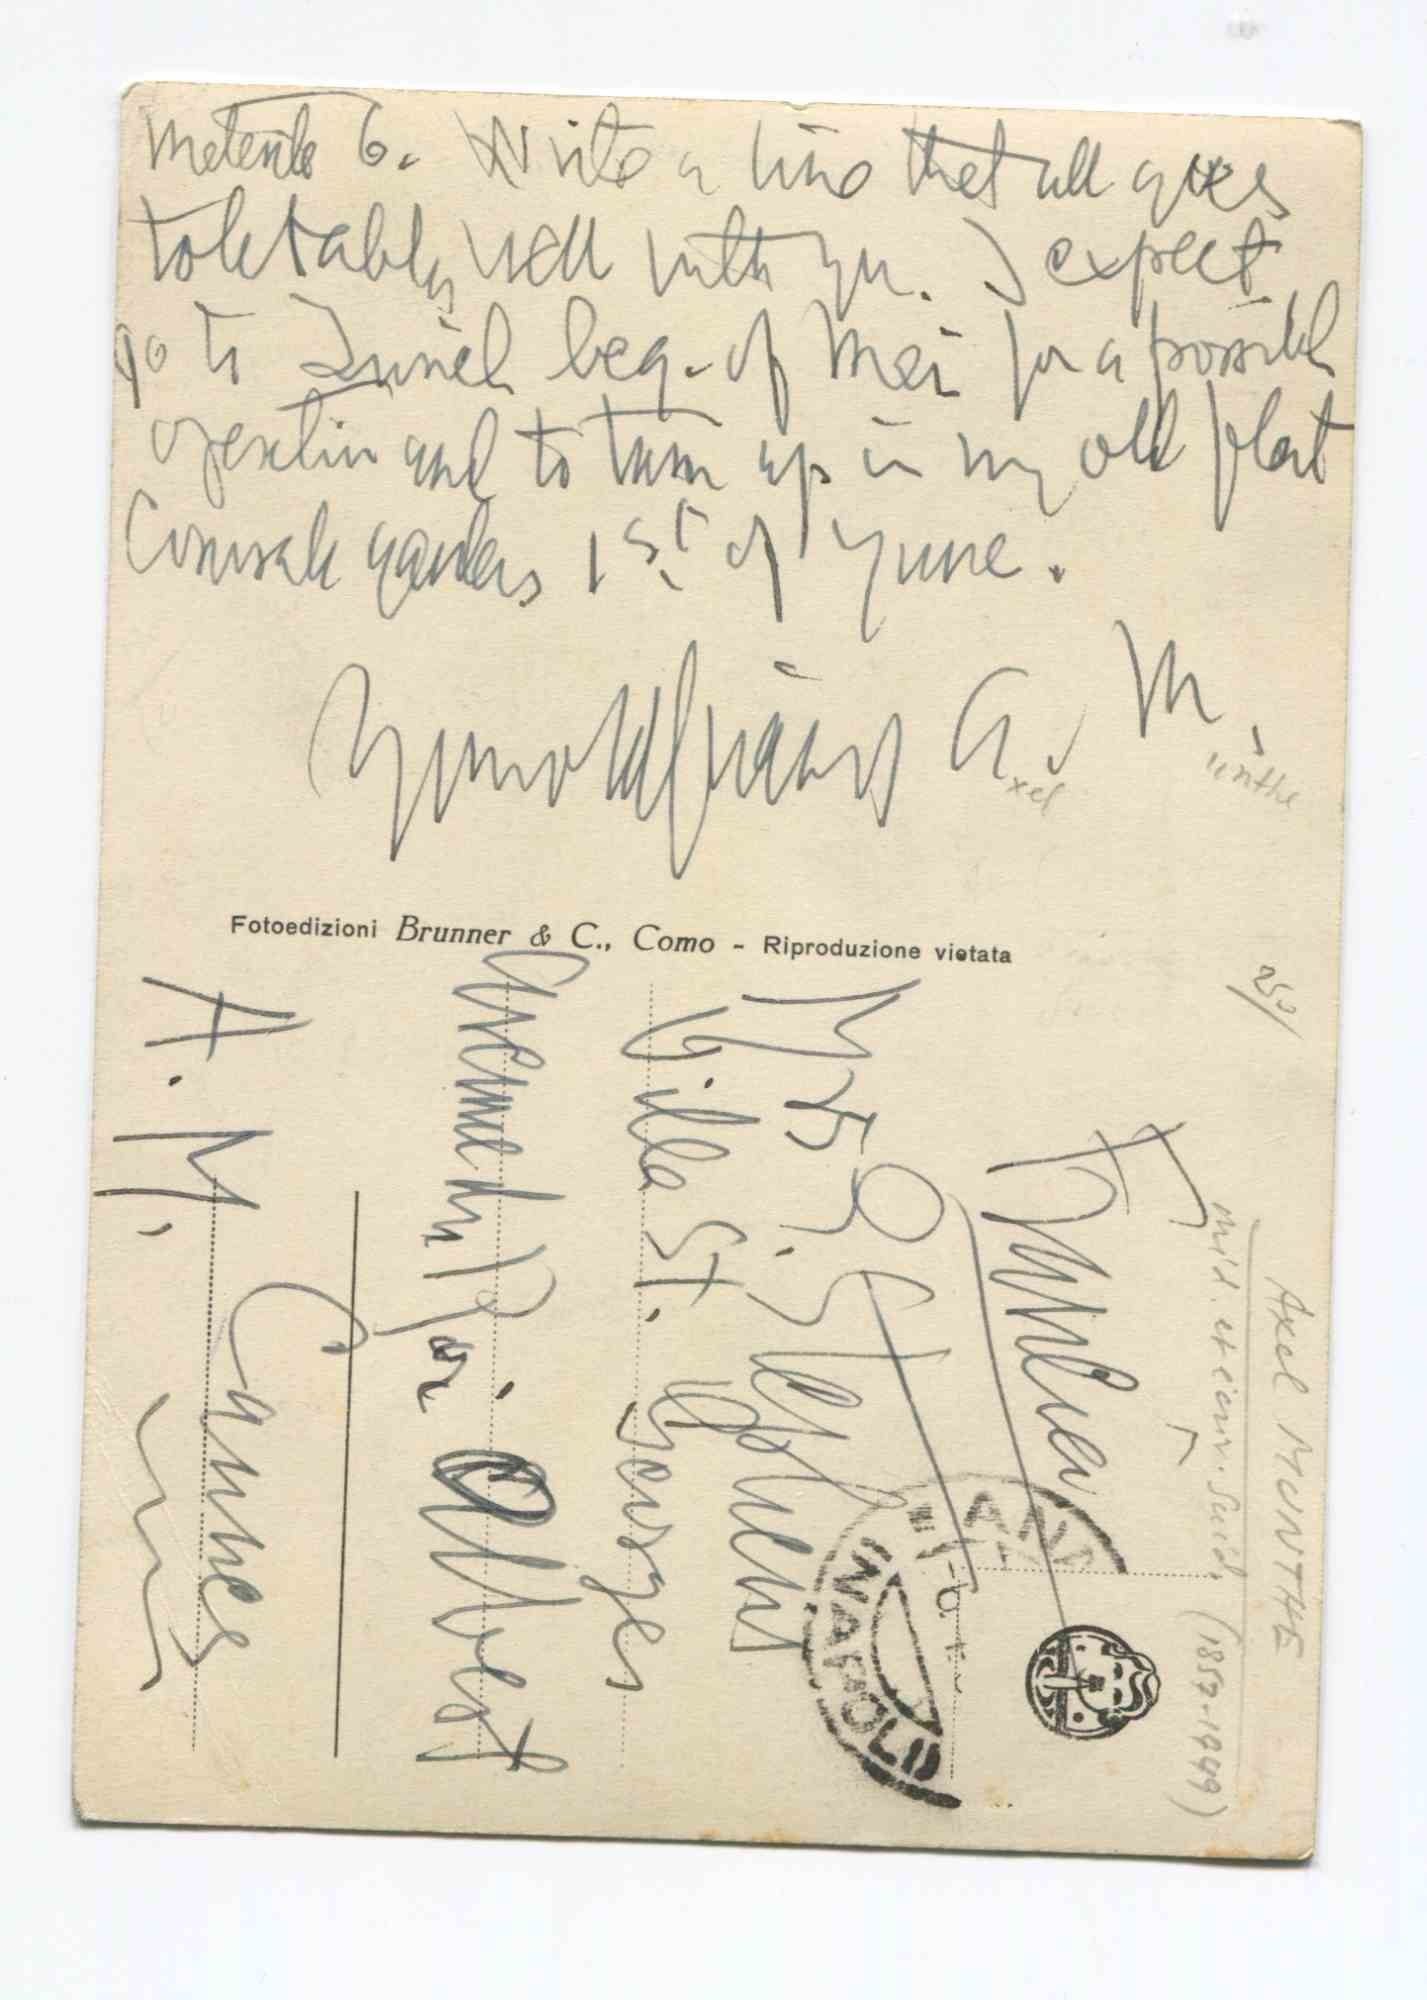 6. Write a line that all goes
tolerably well with you. I expect
go to Zurich beg. of Mai for a possible
and to turn up in my old flat
1st of June.
Your old friend A. M.
xel unthe
Fotoedizioni Brunner & C., Como - Riproduzione vietata
Mrs. Stephens
Villa St. Georges
Avenue du Roi Albert
Cannes
A. M.
NAPOLI
250/
Axel MUNTHE
méd. et écriv. Suéd. (1857-1949)